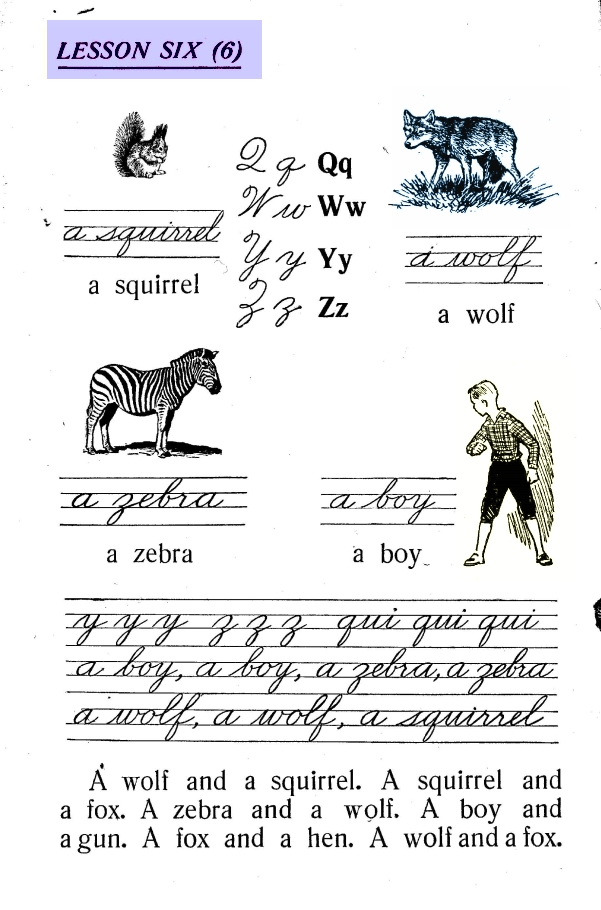 LESSON SIX (6)
Q q Qq
W w Ww
Y y Yy
Z z Zz
a squirrel
a squirrel
a wolf
a wolf
a zebra
a zebra
a boy
a boy
y y y z z z qui qui qui
a boy, a boy, a zebra, a zebra
a wolf, a wolf, a squirrel
A wolf and a squirrel. A squirrel and
a fox. A zebra and a wolf. A boy and
a gun. A fox and a hen. A wolf and a fox.